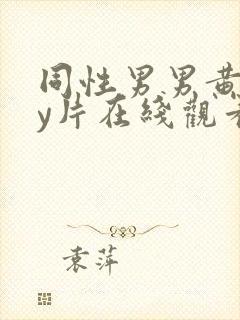 同性男男黄
y片在綫觀看
袁萍